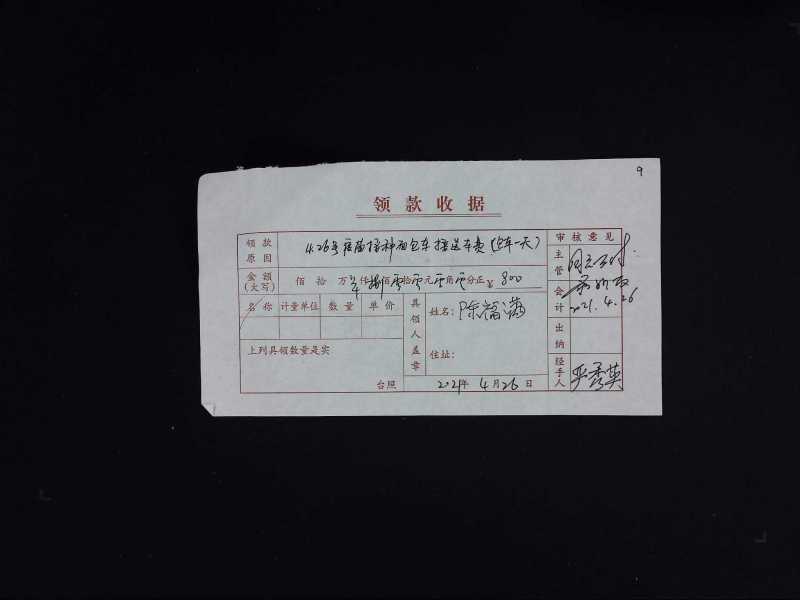 9
领款收据
领款原因 4.26号疫苗接种面包车接送车费(包车一天)
金额(大写) 佰 拾 万 仟捌佰零拾零元零角零分正¥ 800
名称 计量单位 数量 单价
上列具领数量是实
台照
具领人盖章
姓名: 陈福满
住址:
2021年 4月26日
审核意见
主管
会计
2021.4.26
出纳
经手人 严秀英